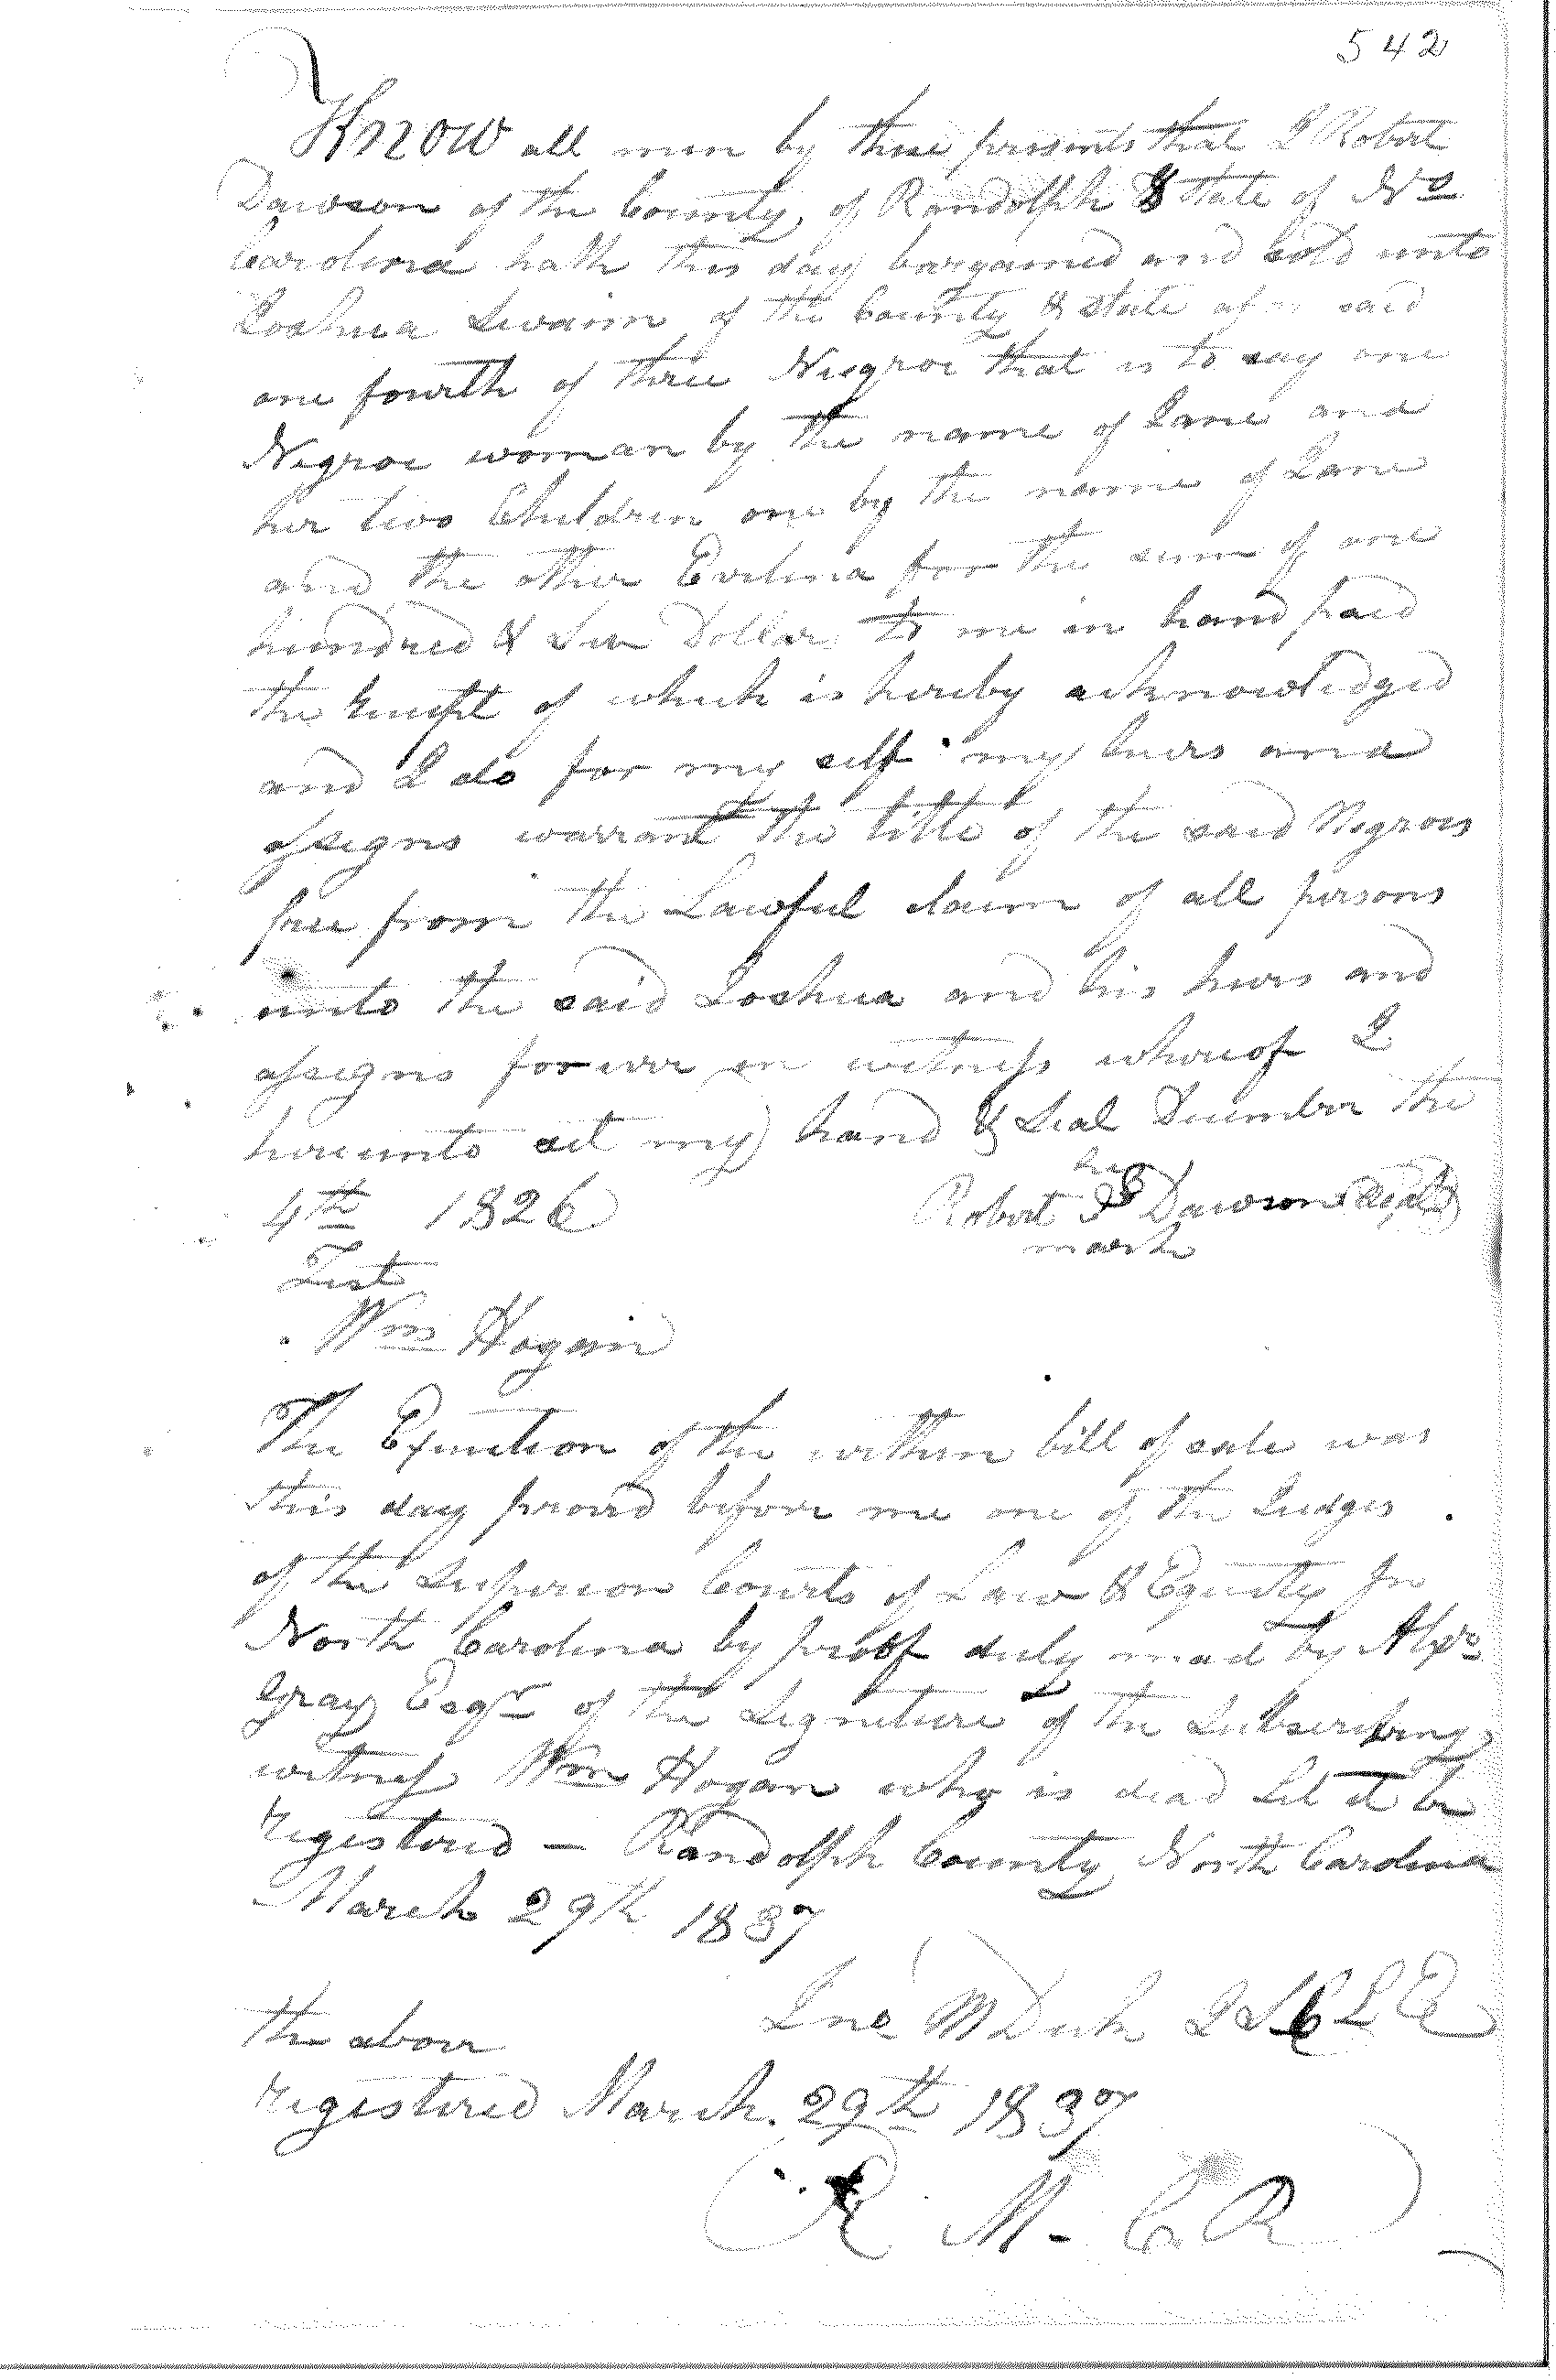 542
Know all men by these presents that I Robert
Dawson of the County of Randolph & State of No
Carolina hath this day bargained and sold unto
Joshua Swaim of the County & State afor said
one fourth of three Negroe that is to say one
Negroe woman by the name of Jane and
her two Children one by the name of Jane
and the other Evelina for the sum of one
hundred & Dollars to me in hand paid
the receipt of which is hereby acknowledged
and I do for my self my heirs and
assigns warrant the title of the said Negroes
free from the Lawful claim of all persons
unto the said Joshua and his heirs and
assigns forever in witness whereof I
hereunto set my hand & Seal December the
4th 1826
his
Robert Dawson Seal
mark
Test
Wm Hogain
The Execution of the within bill of sale was
this day provd before me one of the Judges
of the Superior Courts of Law & Equity In
North Carolina by proof duly mad by Alexr
Gray Esqr of the Signature of the Subscribing
witness Wm Hogan who is dead Let it be
registered — Randolph County North Carolina
March 29th 1837
Jno M Dick J S C L E
the above
registered March 29th 1837
R M. C R